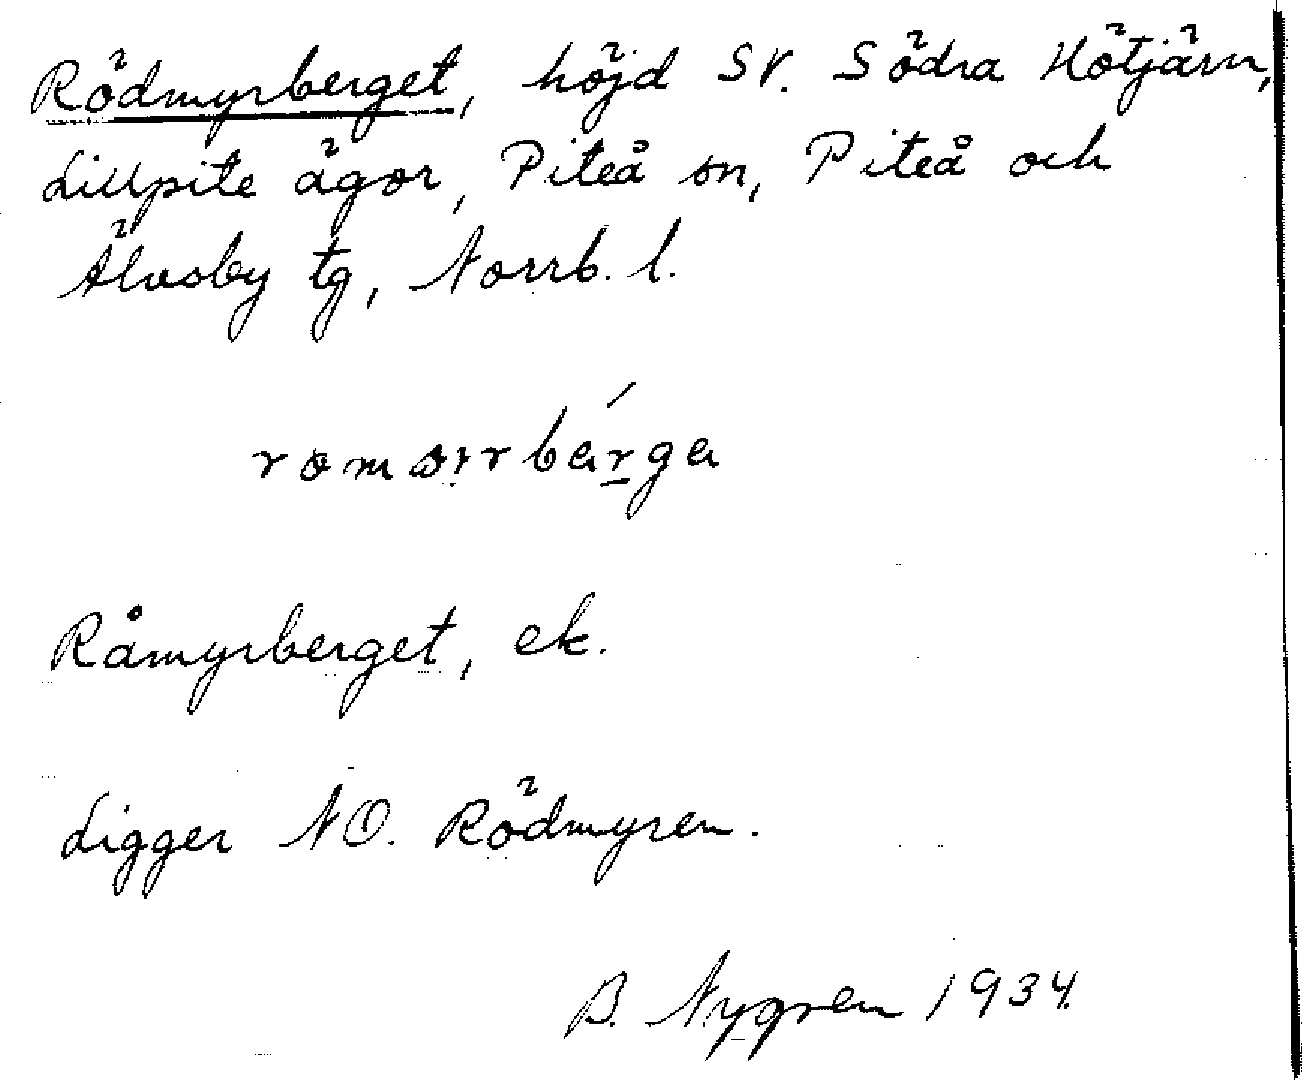 Rödmyrberget, höjd SV. Södra Hötjärn,
Lillpite ägor, Piteå sn, Piteå och
Älvsby tg, Norrb. l.
Råmyrberget, ek.
Ligger NO. Rödmyren.
B. Nygren 1934.